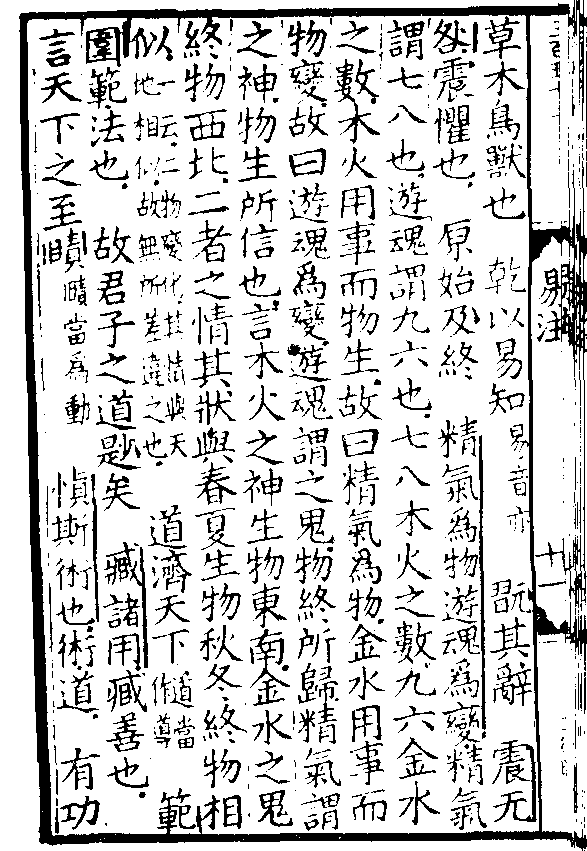 草木鳥獸也　乾以易知易音亦　既其辭　震无
咎震懼也　原始及終　精氣爲物遊魂爲變精氣
謂七八也遊魂謂九六也七八木火之數九六金水
之數木火用事而物生故曰精氣爲物金水用事而
物變故曰遊魂爲變遊魂謂之鬼物終所歸精氣謂
之神物生所信也言木火之神生物東南金水之鬼
終物西北二者之情其狀與春夏生物秋冬終物相
似一云二物變化其情與天地相似故無所差違之也　道濟天下道當作導　範
圍範法也　故君子之道尟矣　臧諸用臧善也
言天下之至賾賾當爲動　愼斯術也術道　有功
易注
十一